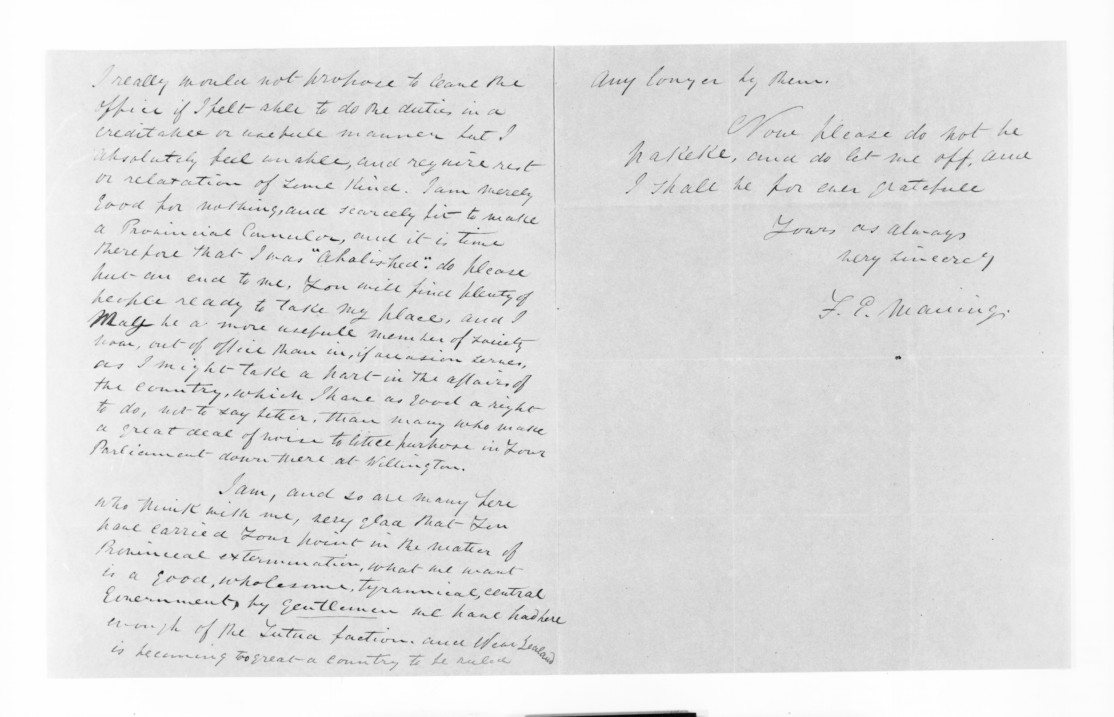 I really would not propose to leave the
office if I felt able to do the duties in a
creditable or usefull manner but I
absolutely feel unable, and require rest
or relaxation of some kind. I am merely
good for nothing, and scarcely fit to make
a Provincial Councelor, and it is time
therefore that I was "abolished". do please
put an end to me, You will find plenty of
people ready to take my place, and I
May be a more usefull member of society
now, out of office than in, if occasion serves,
as I might take a part in the affairs of
the country, which I have as good a right
to do, not to say better, than many who make
a great deal of noise to little purpose in Your
Parliament down there at Wellington.
I am, and so are many here
who think with me, very glad that You
have carried Your point in the matter of
Provinceal extermination, what we want
is a good, wholesome, tyrannical, central
Government, by gentlemen we have had here
enough of the Tutua faction. and New Zealand
is becoming too great a country to be ruled
any longer by them.
Now please do not be
pakeke, and do let me off, and
I shall be for ever gratefull
Yours as always
very sincerely
F. E. Maning.